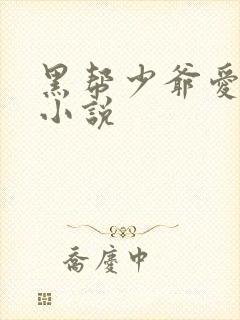 黑帮少爷爱
小説
喬慶中